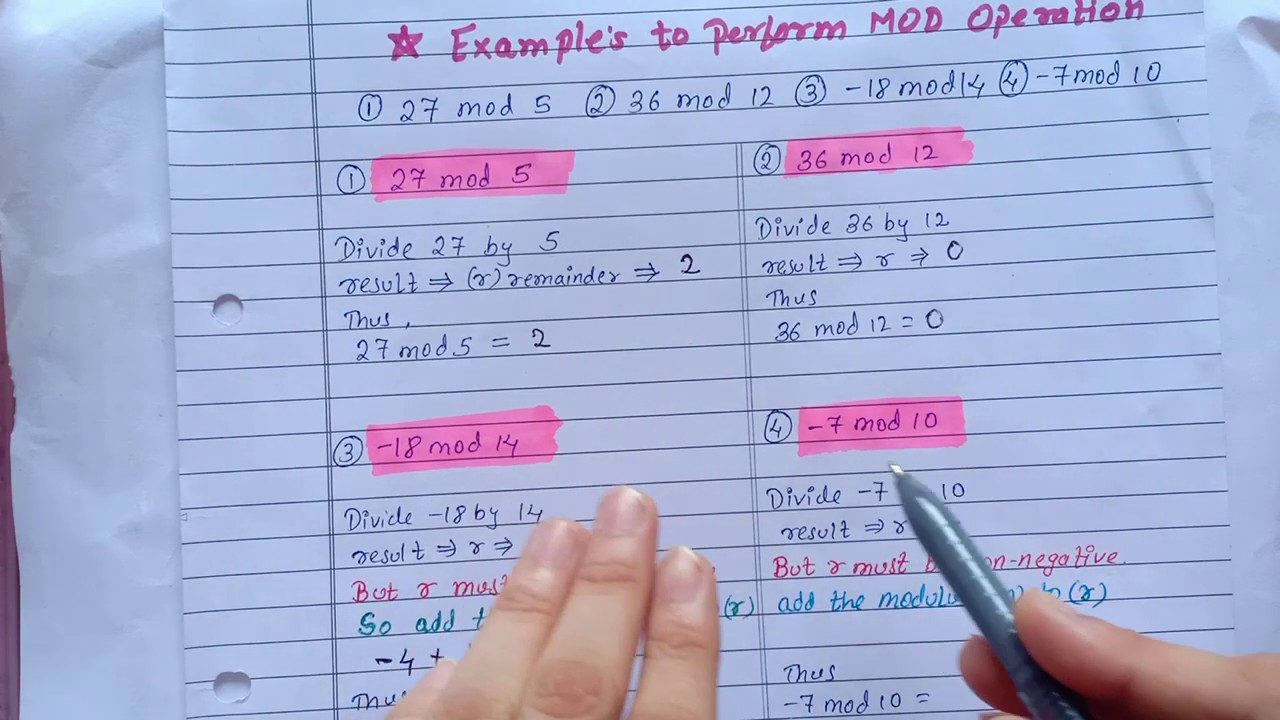 ☆ Example's to Perform MOD Operation
① 27 mod 5 ② 36 mod 12 ③ -18 mod 14 ④ -7 mod 10
① 27 mod 5
Divide 27 by 5
result ⇒ (r) remainder ⇒ 2
Thus,
27 mod 5 = 2
② 36 mod 12
Divide 36 by 12
result ⇒ r ⇒ 0
Thus
36 mod 12 = 0
③ -18 mod 14
Divide -18 by 14
result ⇒ r ⇒
But r must
So add (r)
-4 +
④ -7 mod 10
Divide -7 10
result ⇒ r
But r must non-negative.
add the (r)
Thus
-7 mod 10 =